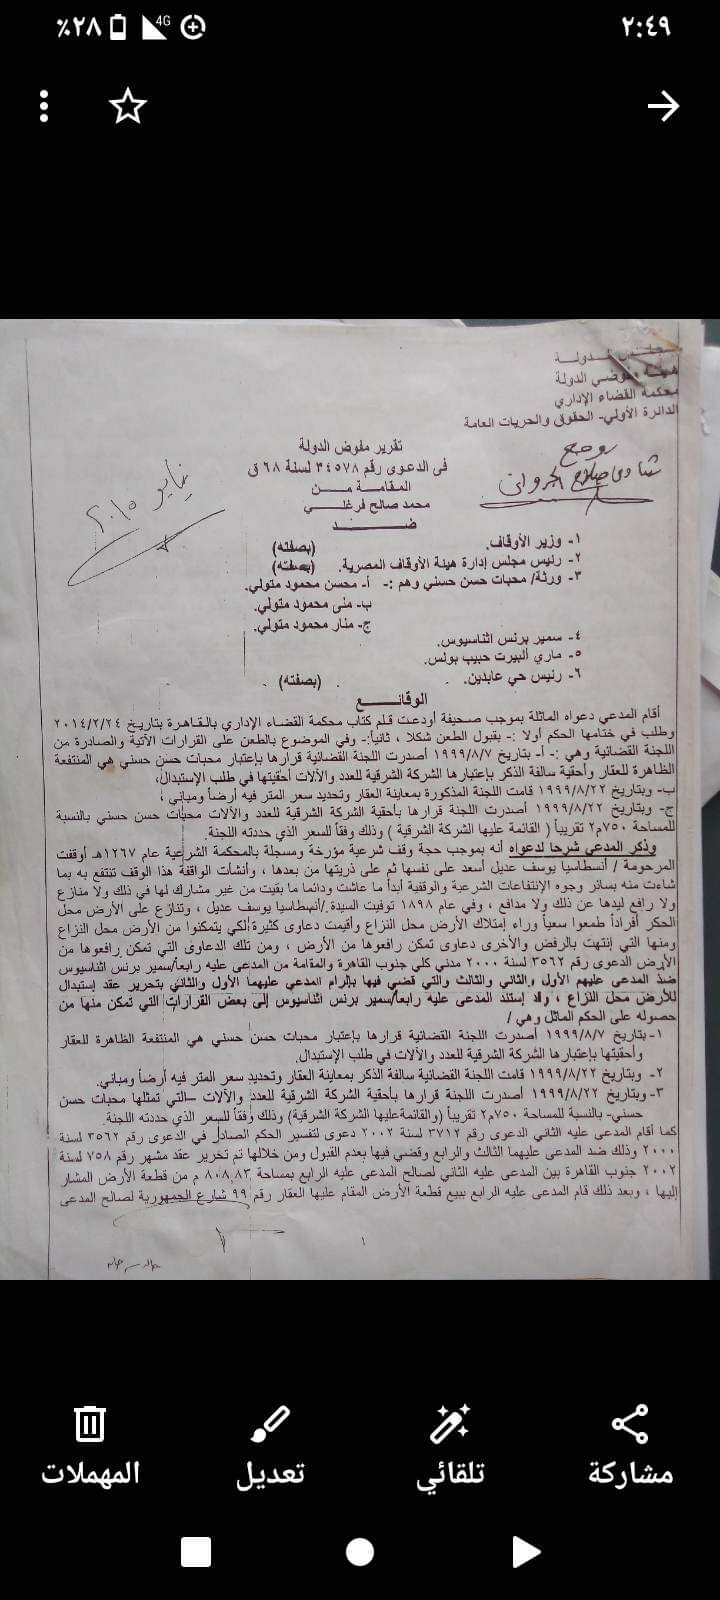 ٢:٤٩
4G
٪٢٨
مجلس الدولة
هيئة مفوضي الدولة
محكمة القضاء الإداري
الدائرة الأولي- الحقوق والحريات العامة
تقرير مفوض الدولة
فى الدعوى رقم ٣٤٥٧٨ لسنة ٦٨ ق
المقامة مـــن
محمد صالح فرغلـــي
ضـــــــد
روجع
شادى صلاح
يناير ٢٠١٥
١- وزير الأوقاف. (بصفته)
٢- رئيس مجلس إدارة هيئة الأوقاف المصرية. (بصفته)
٣- ورثة/ محبات حسن حسني وهم :- أ- محسن محمود متولي.
ب- منى محمود متولي.
ج- منار محمود متولي.
٤- سمير برنس اثناسيوس.
٥- ماري ألبيرت حبيب بولس.
٦- رئيس حي عابدين. (بصفته)
الوقائـــــع
أقام المدعي دعواه الماثلة بموجب صحيفة أودعت قلم كتاب محكمة القضاء الإداري بالقاهرة بتاريخ ٢٠١٤/٢/٢٤
وطلب في ختامها الحكم أولا :- بقبول الطعن شكلا ، ثانياً:- وفي الموضوع بالطعن على القرارات الآتية والصادرة من
اللجنة القضائية وهي :- أ- بتاريخ ١٩٩٩/٨/٧ أصدرت اللجنة القضائية قرارها بإعتبار محبات حسن حسني هي المنتفعة
الظاهرة للعقار وأحقية سالفة الذكر بإعتبارها الشركة الشرقية للعدد والآلات أحقيتها في طلب الإستبدال،
ب- وبتاريخ ١٩٩٩/٨/٢٢ قامت اللجنة المذكورة بمعاينة العقار وتحديد سعر المتر فيه أرضاً ومباني ،
ج- وبتاريخ ١٩٩٩/٨/٢٢ أصدرت اللجنة قرارها بأحقية الشركة الشرقية للعدد والآلات محبات حسن حسني بالنسبة
للمساحة ٧٥٠م٢ تقريباً ( القائمة عليها الشركة الشرقية ) وذلك وفقاً للسعر الذي حددته اللجنة.
وذكر المدعي شرحا لدعواه أنه بموجب حجة وقف شرعية مؤرخة ومسجلة بالمحكمة الشرعية عام ١٢٦٧هـ أوقفت
المرحومة / أنسطاسيا يوسف عديل أسعد على نفسها ثم على ذريتها من بعدها ، وأنشأت الواقفة هذا الوقف تنتفع به بما
شاءت منه بسائر وجوه الإنتفاعات الشرعية والوقفية أبداً ما عاشت ودائما ما بقيت من غير مشارك لها في ذلك ولا منازع
ولا رافع ليدها عن ذلك ولا مدافع ، وفي عام ١٨٩٨ توفيت السيدة /أنسطاسيا يوسف عديل ، وتنازع على الأرض محل
الحكر أفراداً طمعوا سعياً وراء إمتلاك الأرض محل النزاع وأقيمت دعاوى كثيرة لكي يتمكنوا من الأرض محل النزاع
ومنها التي إنتهت بالرفض والأخرى دعاوى تمكن رافعوها من الأرض ، ومن تلك الدعاوى التي تمكن رافعوها من
الأرض الدعوى رقم ٣٥٦٢ لسنة ٢٠٠٠ مدني كلي جنوب القاهرة والمقامة من المدعى عليه رابعاً/سمير برنس اثناسيوس
ضد المدعى عليهم الأول والثاني والثالث والتي قضي فيها بإلزام المدعي عليهما الأول والثاني بتحرير عقد إستبدال
للأرض محل النزاع ، وقد إستند المدعى عليه رابعاً/سمير برنس اثناسيوس إلى بعض القرارات التي تمكن منها من
حصوله على الحكم الماثل وهي /
١- بتاريخ ١٩٩٩/٨/٧ أصدرت اللجنة القضائية قرارها بإعتبار محبات حسن حسني هي المنتفعة الظاهرة للعقار
وأحقيتها بإعتبارها الشركة الشرقية للعدد والآلات في طلب الإستبدال.
٢- وبتاريخ ١٩٩٩/٨/٢٢ قامت اللجنة القضائية سالفة الذكر بمعاينة العقار وتحديد سعر المتر فيه أرضاً ومباني.
٣- وبتاريخ ١٩٩٩/٨/٢٢ أصدرت اللجنة قرارها بأحقية الشركة الشرقية للعدد والآلات –التي تمثلها محبات حسن
حسني- بالنسبة للمساحة ٧٥٠م٢ تقريباً (والقائمةعليها الشركة الشرقية) وذلك وفقاً للسعر الذي حددته اللجنة.
كما أقام المدعى عليه الثاني الدعوى رقم ٣٧١٢ لسنة ٢٠٠٢ دعوى لتفسير الحكم الصادر في الدعوى رقم ٣٥٦٢ لسنة
٢٠٠٠ وذلك ضد المدعى عليهما الثالث والرابع وقضي فيها بعدم القبول ومن خلالها تم تحرير عقد مشهر رقم ٧٥٨ لسنة
٢٠٠٢ جنوب القاهرة بين المدعى عليه الثاني لصالح المدعى عليه الرابع بمساحة ٨٠٨,٨٣ م من قطعة الأرض المشار
إليها ، وبعد ذلك قام المدعى عليه الرابع ببيع قطعة الأرض المقام عليها العقار رقم ٩٩ شارع الجمهورية لصالح المدعى
١
مشاركة
تلقائي
تعديل
المهملات